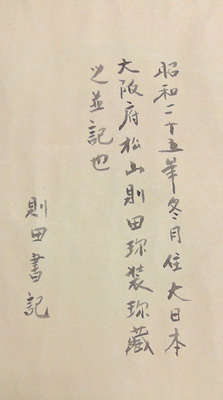 昭和二十五年冬月住大日本
大阪府松山則田珎装珎藏
之並記也
則田書記